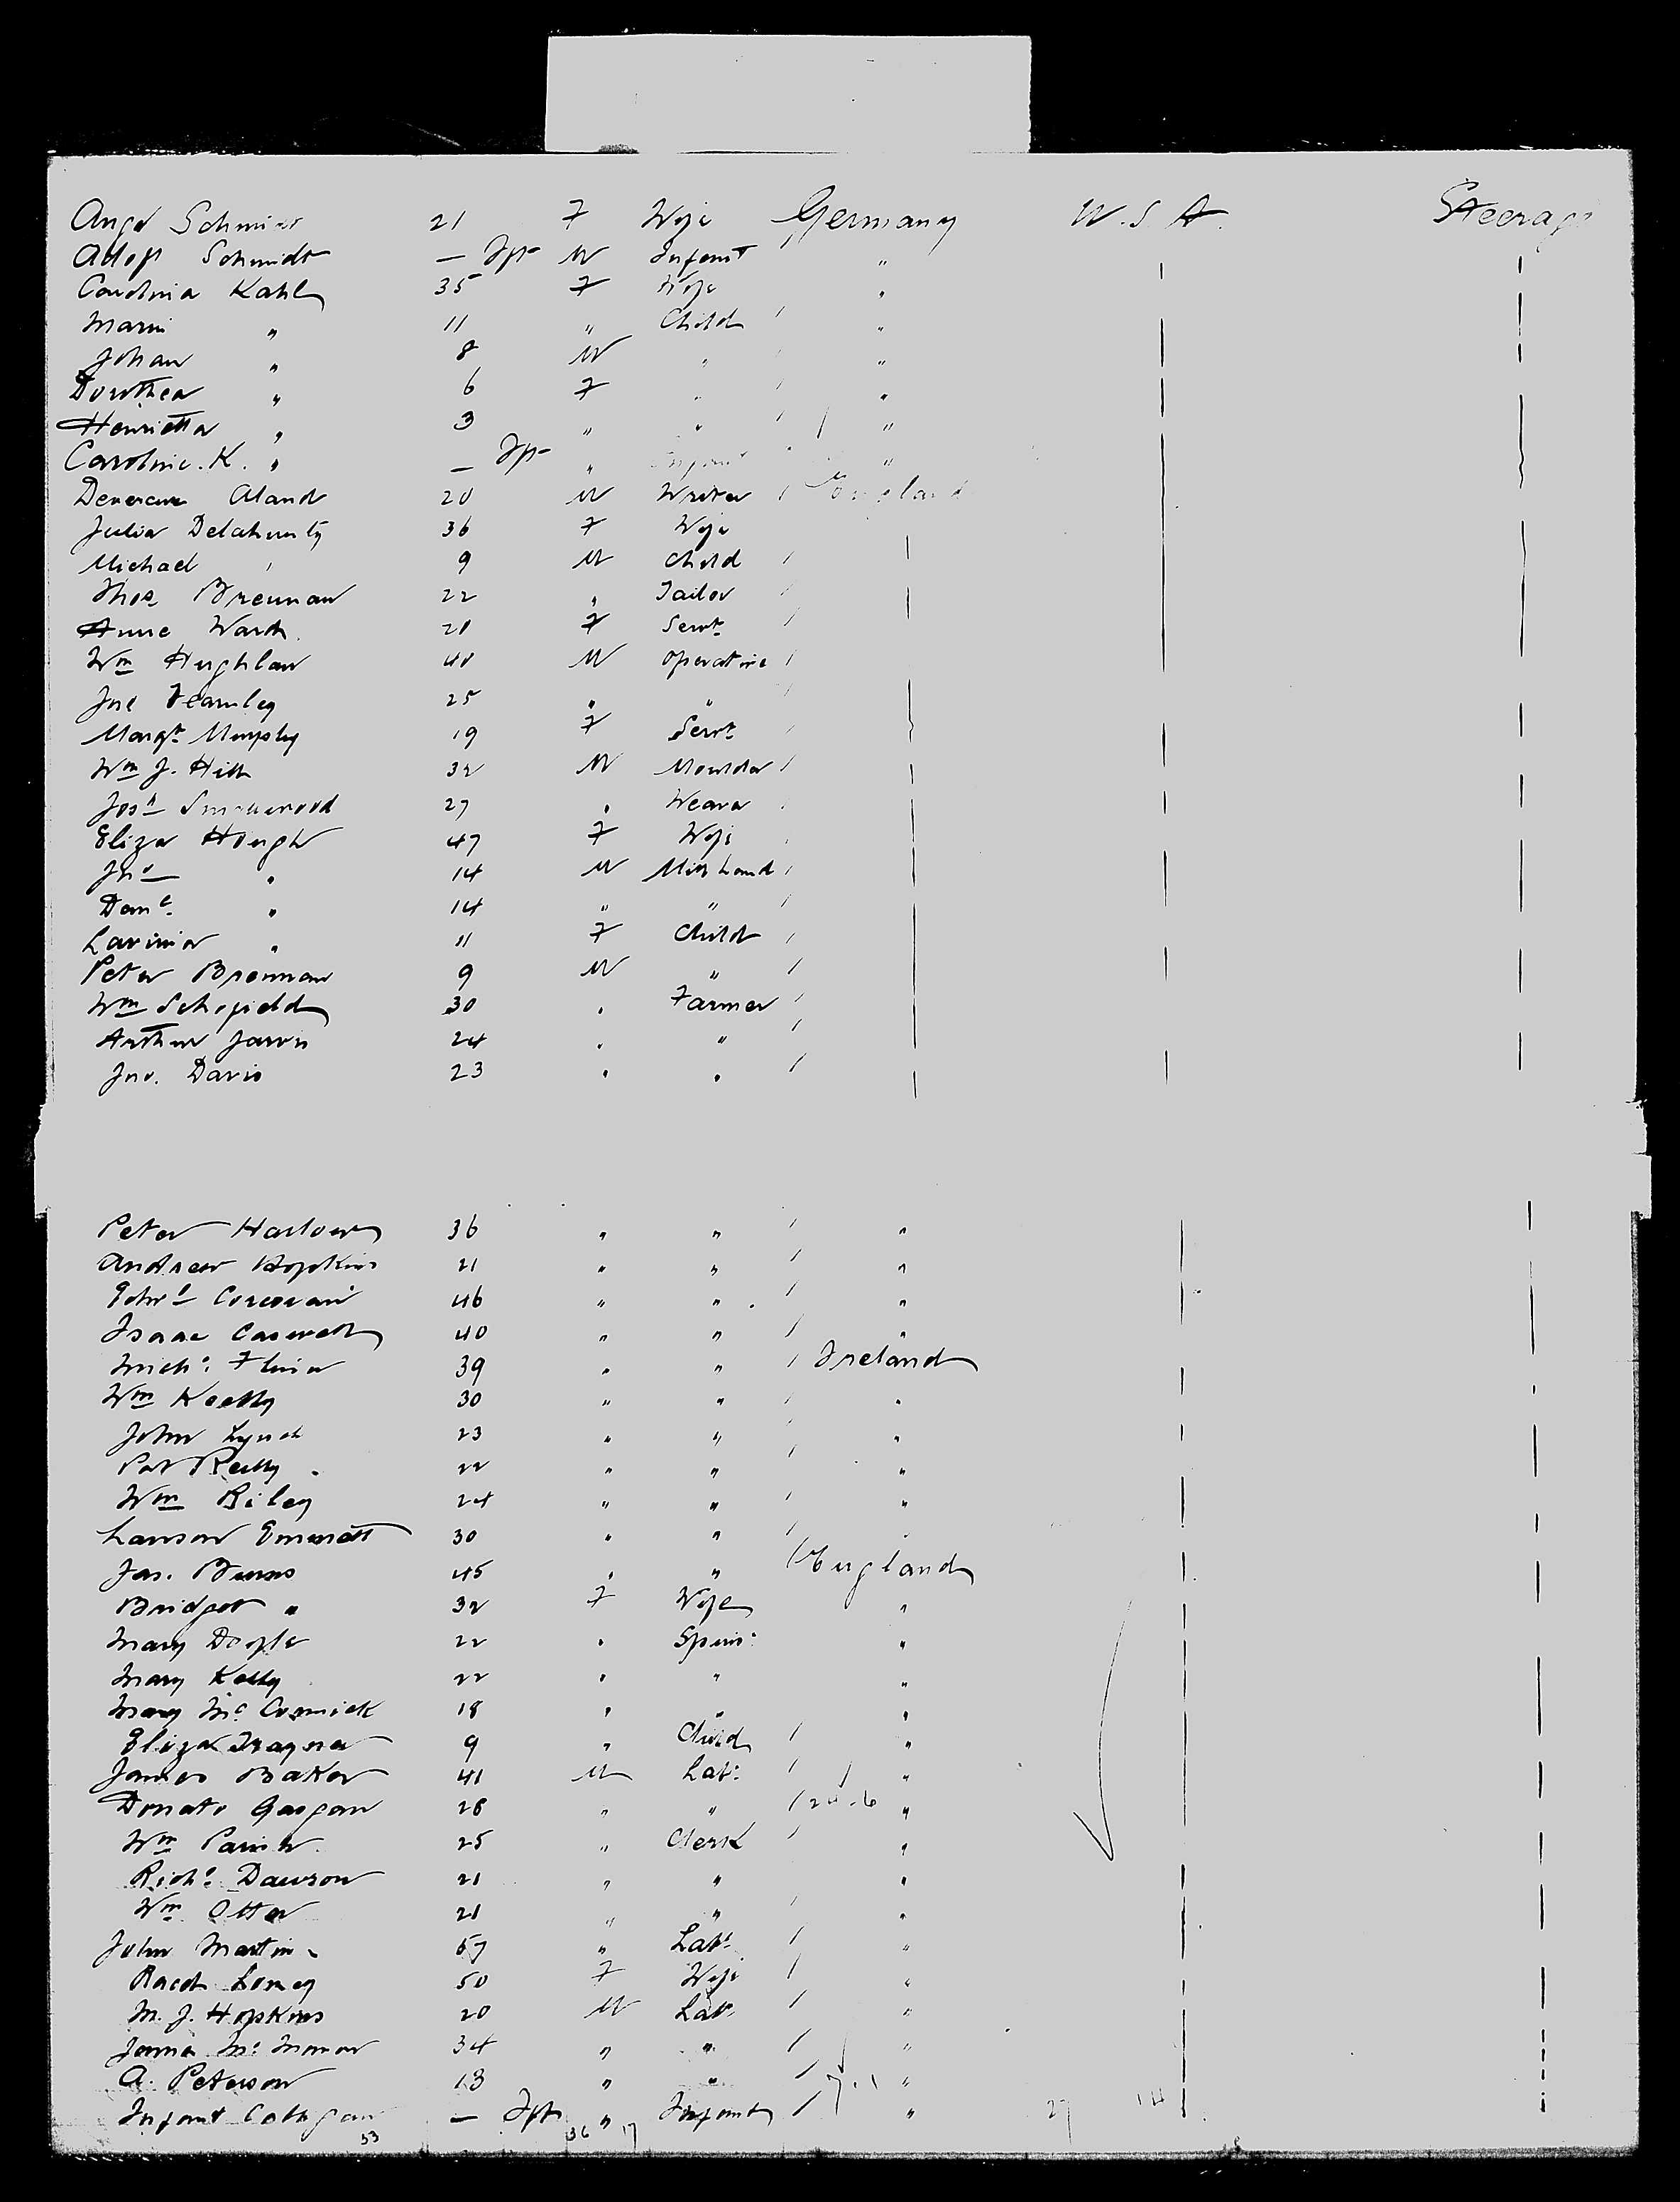 Schmidt 21 F Wife Germany U.S.A. Steerage
Adolf Schmidt — Inft M Infant "
Carolina Kahl 35 F Wife "
Marie " 11 " Child "
Johan " 8 M " "
Dorothea " 6 F " "
Henrietta " 3 " " "
Caroline. K. " — Inft " Infant "
Aland 20 M Writer England
Julia Delahunty 36 F Wife
Michael " 9 M Child
Thos Brennan 22 " Tailor
Anne Ward 20 F Servt
Wm Hughlan 40 M Operative
Jno Fearnley 25 " "
Margt Murphy 19 F Servt
Wm J. Hill 32 M Moulder
Josh Smallwood 27 " Weaver
Eliza Hough 47 F Wife
Jno " 14 M Mill hand
Danl " 14 " "
Lavinia " 11 F Child
Peter Brennan 9 M "
Wm Schofield 30 " Farmer
Arthur Jarvis 24 " "
Jno. Davis 23 " "
Peter 36 " " "
Andrew Hopkins 21 " " "
Edwd Corcoran 46 " " "
Isaac Caswell 40 " " "
Michl 39 " " Ireland
Wm Keelly 30 " " "
John Lynch 23 " " "
Pat Reilly 22 " " "
Wm Riley 24 " " "
Lawson Emmett 30 " "
Jas. Burns 45 " " England
Bridget " 32 F Wife "
Mary Doyle 22 " Spinr "
Mary Kelly 22 " " "
Mary McCormick 18 " " "
Eliza Traynor 9 " Child "
James Baker 41 M Labr "
Donato Gargan 28 " " "
Wm Parish 25 " Clerk "
Richd Dawson 21 " " "
Wm Otter 21 " " "
John Martin 57 " Labr "
50 F Wife "
M. J. Hopkins 20 M Labr "
34 " " "
A. Peterson 18 " " "
Infant — Inft " Infant "
53 36 17 27